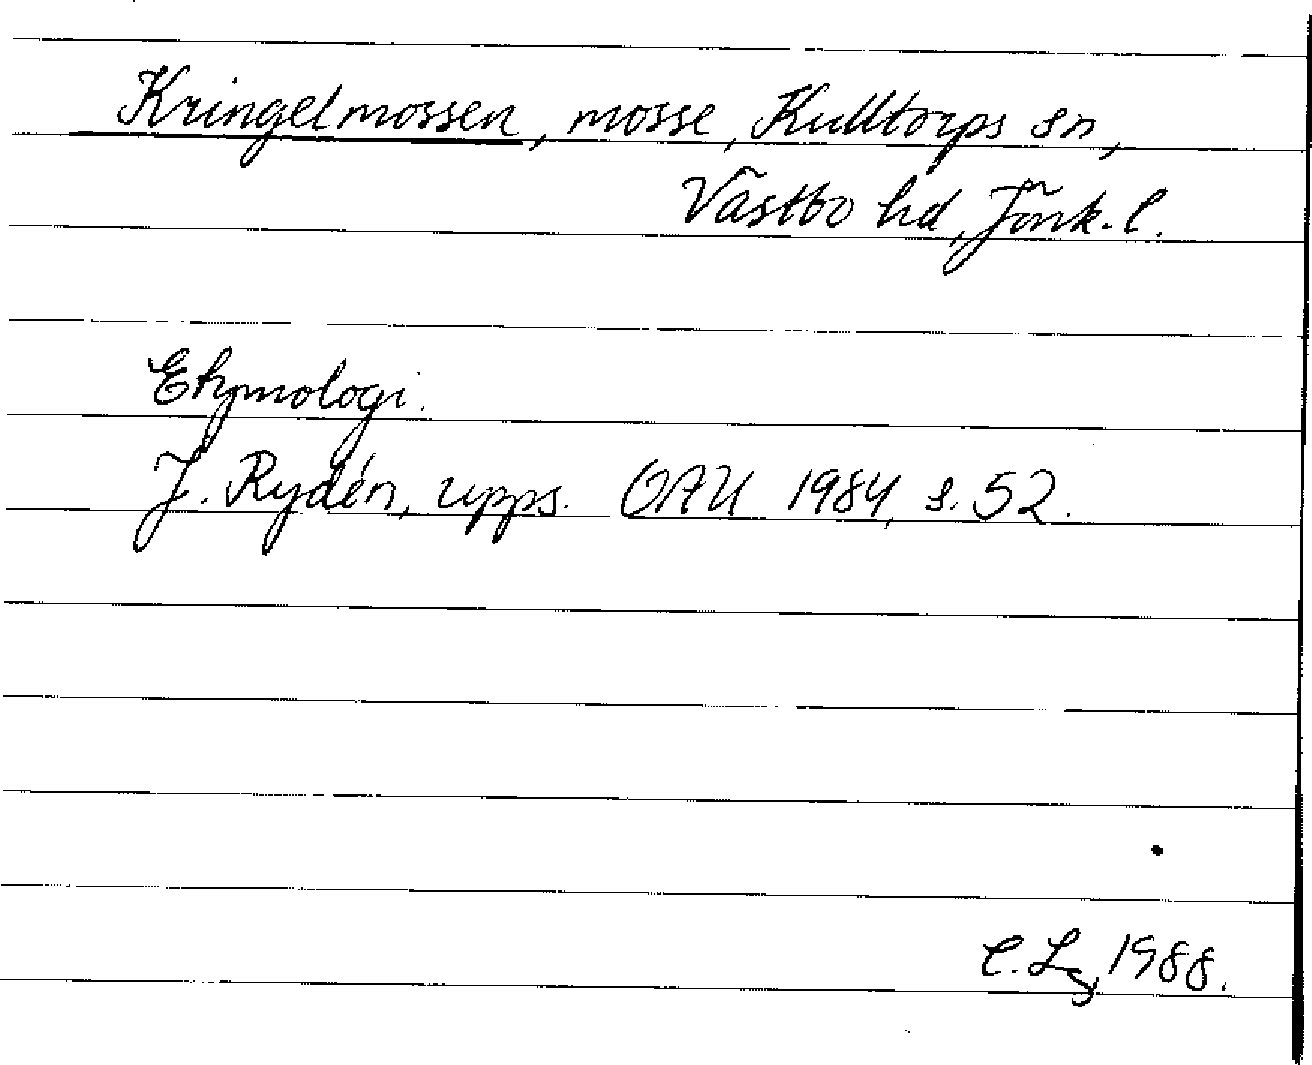 Kringelmossen, mosse, Kulltorps sn,
Västbo hd, Jönk. l.
Etymologi.
J. Rydén, upps. OAU 1984, s. 52.
C. L, 1988.